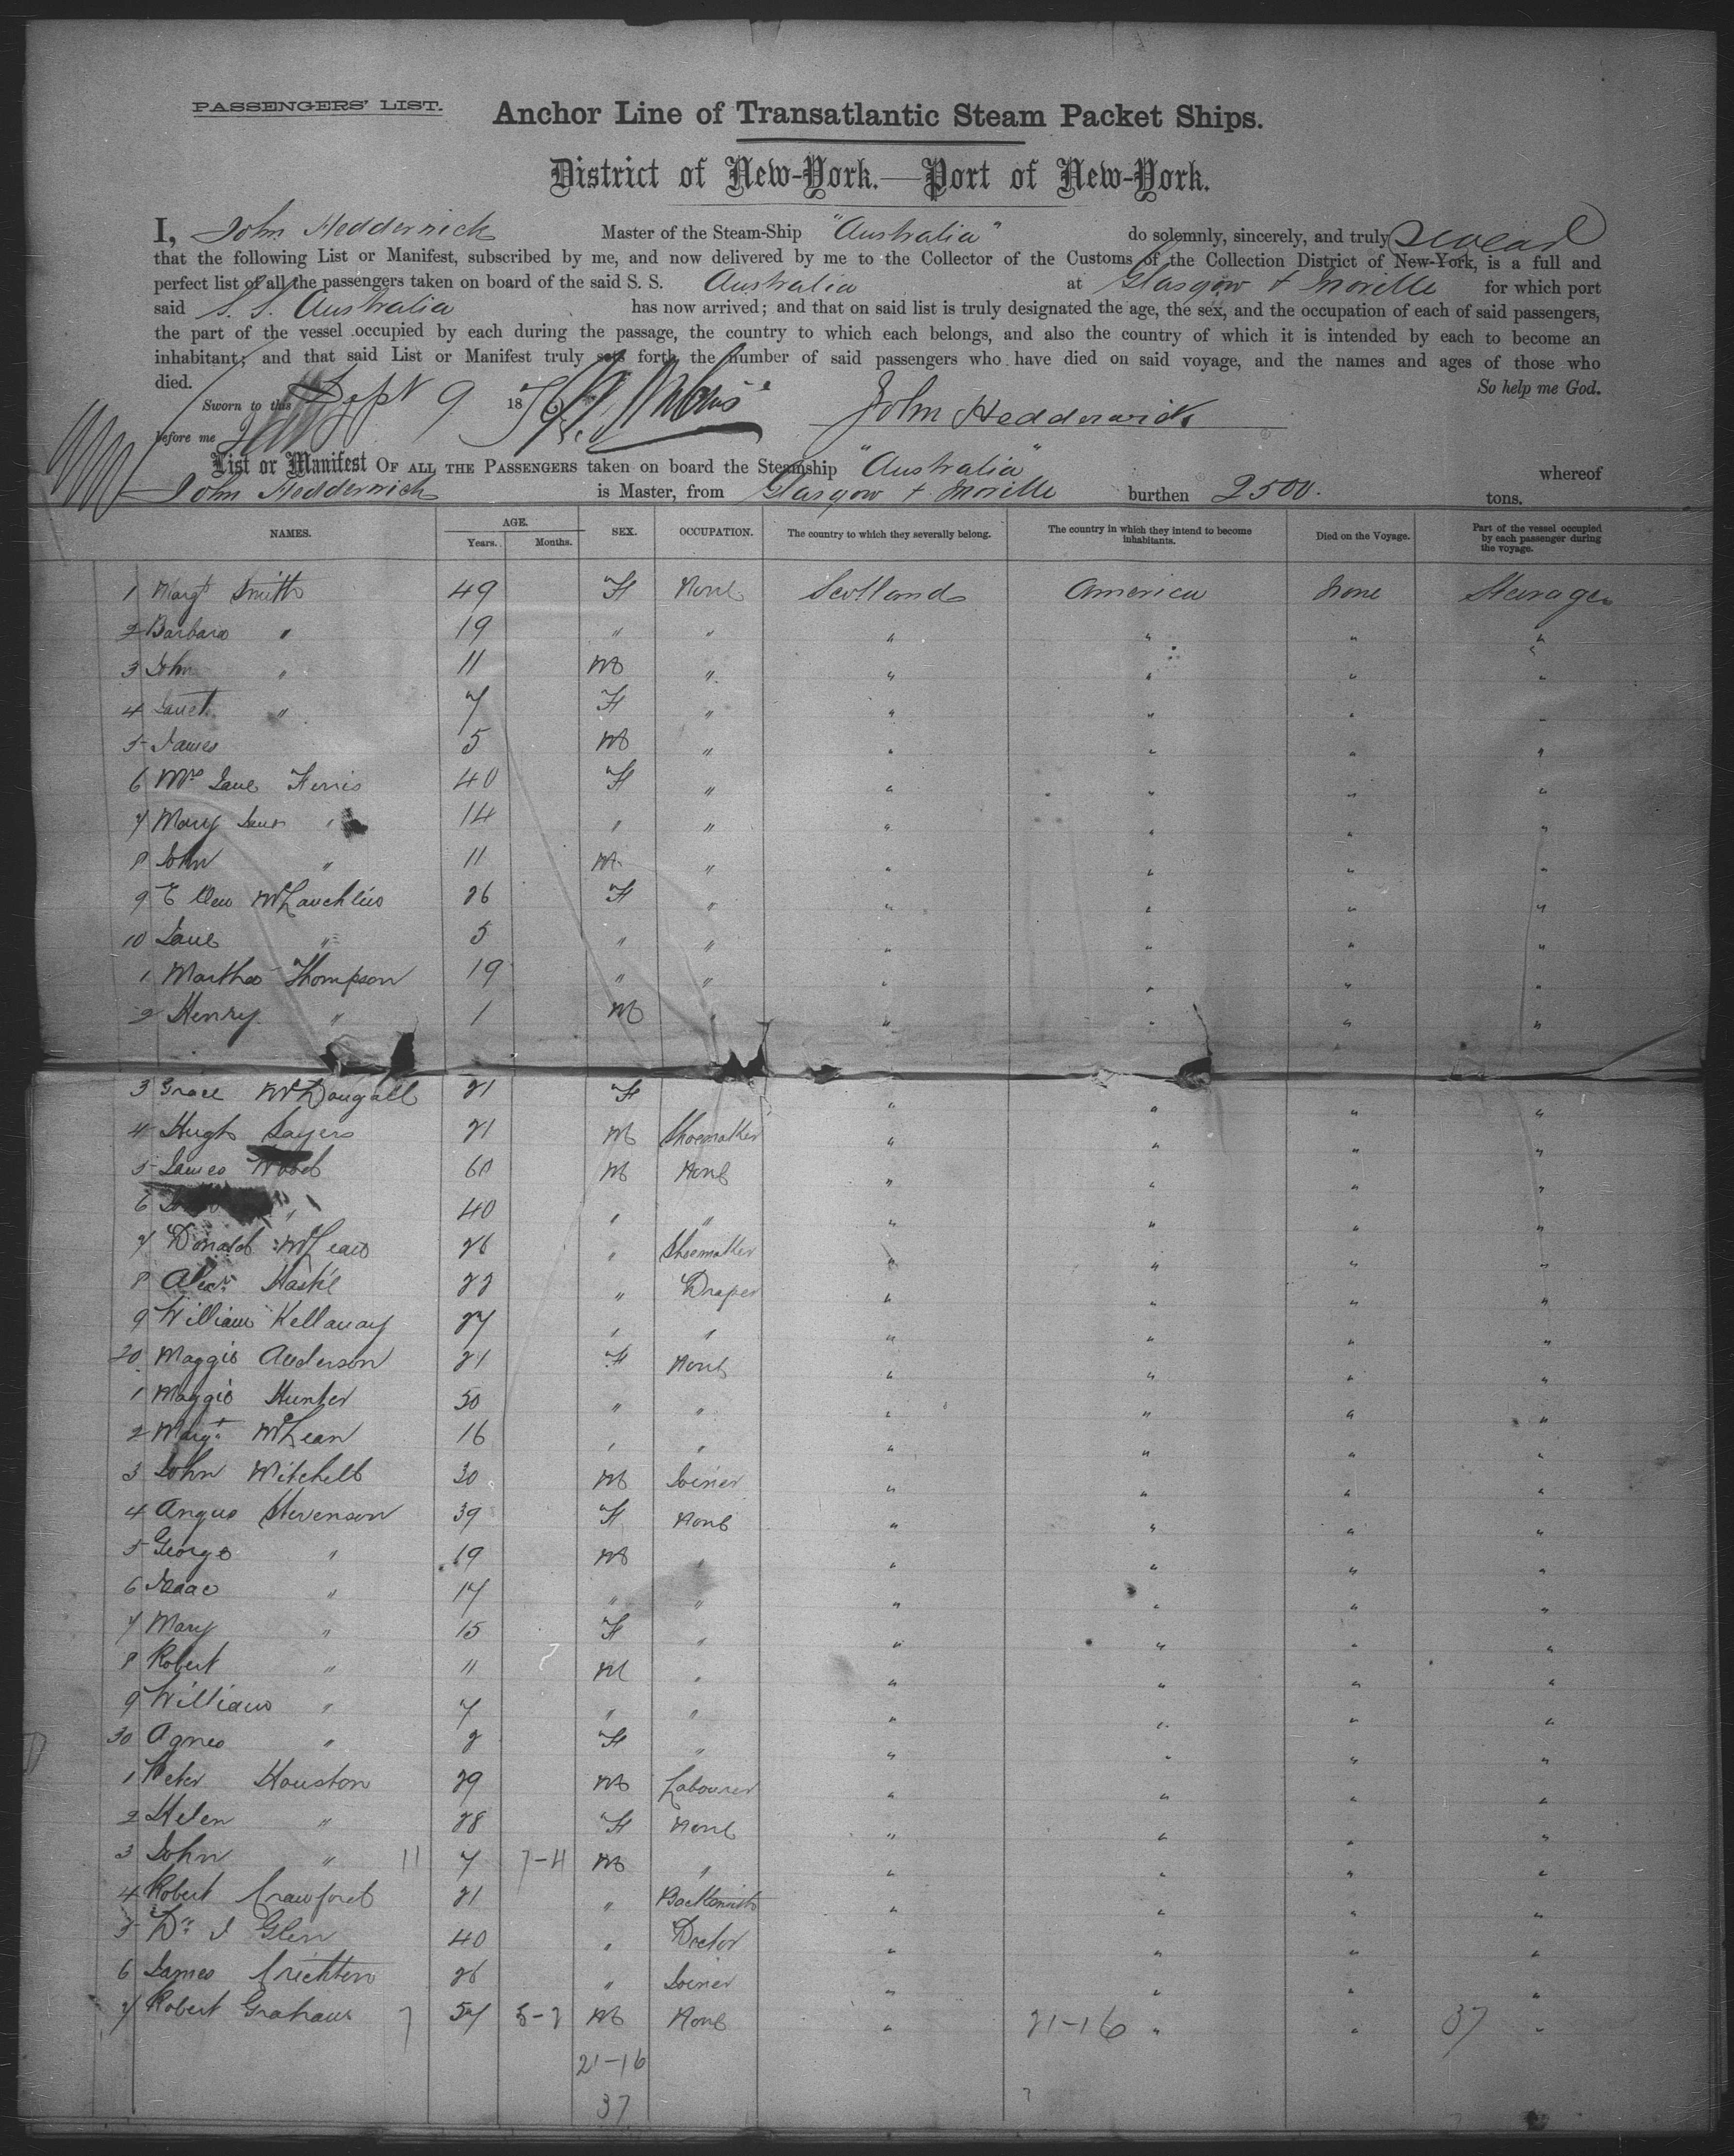 PASSENGERS' LIST.
Anchor Line of Transatlantic Steam Packet Ships.
District of New-York.—Port of New-York.
I, John Hedderwick Master of the Steam-Ship "Australia" do solemnly, sincerely, and truly swear
that the following List or Manifest, subscribed by me, and now delivered by me to the Collector of the Customs of the Collection District of New-York, is a full and
perfect list of all the passengers taken on board of the said S. S. Australia at Glasgow + Moville for which port
said S. S. Australia has now arrived; and that on said list is truly designated the age, the sex, and the occupation of each of said passengers,
the part of the vessel occupied by each during the passage, the country to which each belongs, and also the country of which it is intended by each to become an
inhabitant; and that said List or Manifest truly sets forth the number of said passengers who have died on said voyage, and the names and ages of those who
died. So help me God.
Sworn to this Sept 9 1876 John Hedderwick
before me
List or Manifest OF ALL THE PASSENGERS taken on board the Steamship "Australia" whereof
John Hedderwick is Master, from Glasgow + Moville burthen 2500. tons.
NAMES. AGE. Years. Months. SEX. OCCUPATION. The country to which they severally belong. The country in which they intend to become inhabitants. Died on the Voyage. Part of the vessel occupied by each passenger during the voyage.
1 Margt Smith 49 F None Scotland America None Steerage
2 Barbara " 19 " " " " " "
3 John " 11 M " " " " "
4 Janet " 7 F " " " " "
5 James 5 M " " " " "
6 Mrs Jane Ferris 40 F " " " " "
7 Mary Jane " 14 " " " " " "
8 John " 11 M " " " " "
9 Ellen McLauchlin 26 F " " " " "
10 Jane " 5 " " " " " "
1 Martha Thompson 19 " " " " " "
2 Henry " 1 M " " " " "
3 Grace McDougall 21 F " " " "
4 Hugh Sayers 21 M Shoemaker " " " "
5 James Wood 60 M None " " " "
6 " 40 " " " " " "
7 Donald McLean 26 " Shoemaker " " " "
8 Alexr Hastie 22 " Draper " " " "
9 William Kellaway 27 " " " " " "
20 Maggie Anderson 21 F None " " " "
1 Maggie Hunter 50 " " " " " "
2 Margt McLean 16 " " " " " "
3 John Mitchell 30 M Joiner " " " "
4 Angus Stevenson 39 F None " " " "
5 George " 19 M " " " " "
6 Isaac " 17 " " " " " "
7 Mary " 15 F " " " " "
8 Robert " 11 M " " " " "
9 William " 7 " " " " " "
30 Agnes " 2 F " " " " "
1 Peter Houston 29 M Labourer " " " "
2 Helen " 28 F None " " " "
3 John " 11 7 7-4 M " " " " "
4 Robert Crawford 21 " " " " "
5 Dr J Glen 40 " Doctor " " " "
6 James Crichton 26 " Joiner " " " "
7 Robert Graham 7 57 5-2 M None " 21-16 " " 37 "
21-16
37